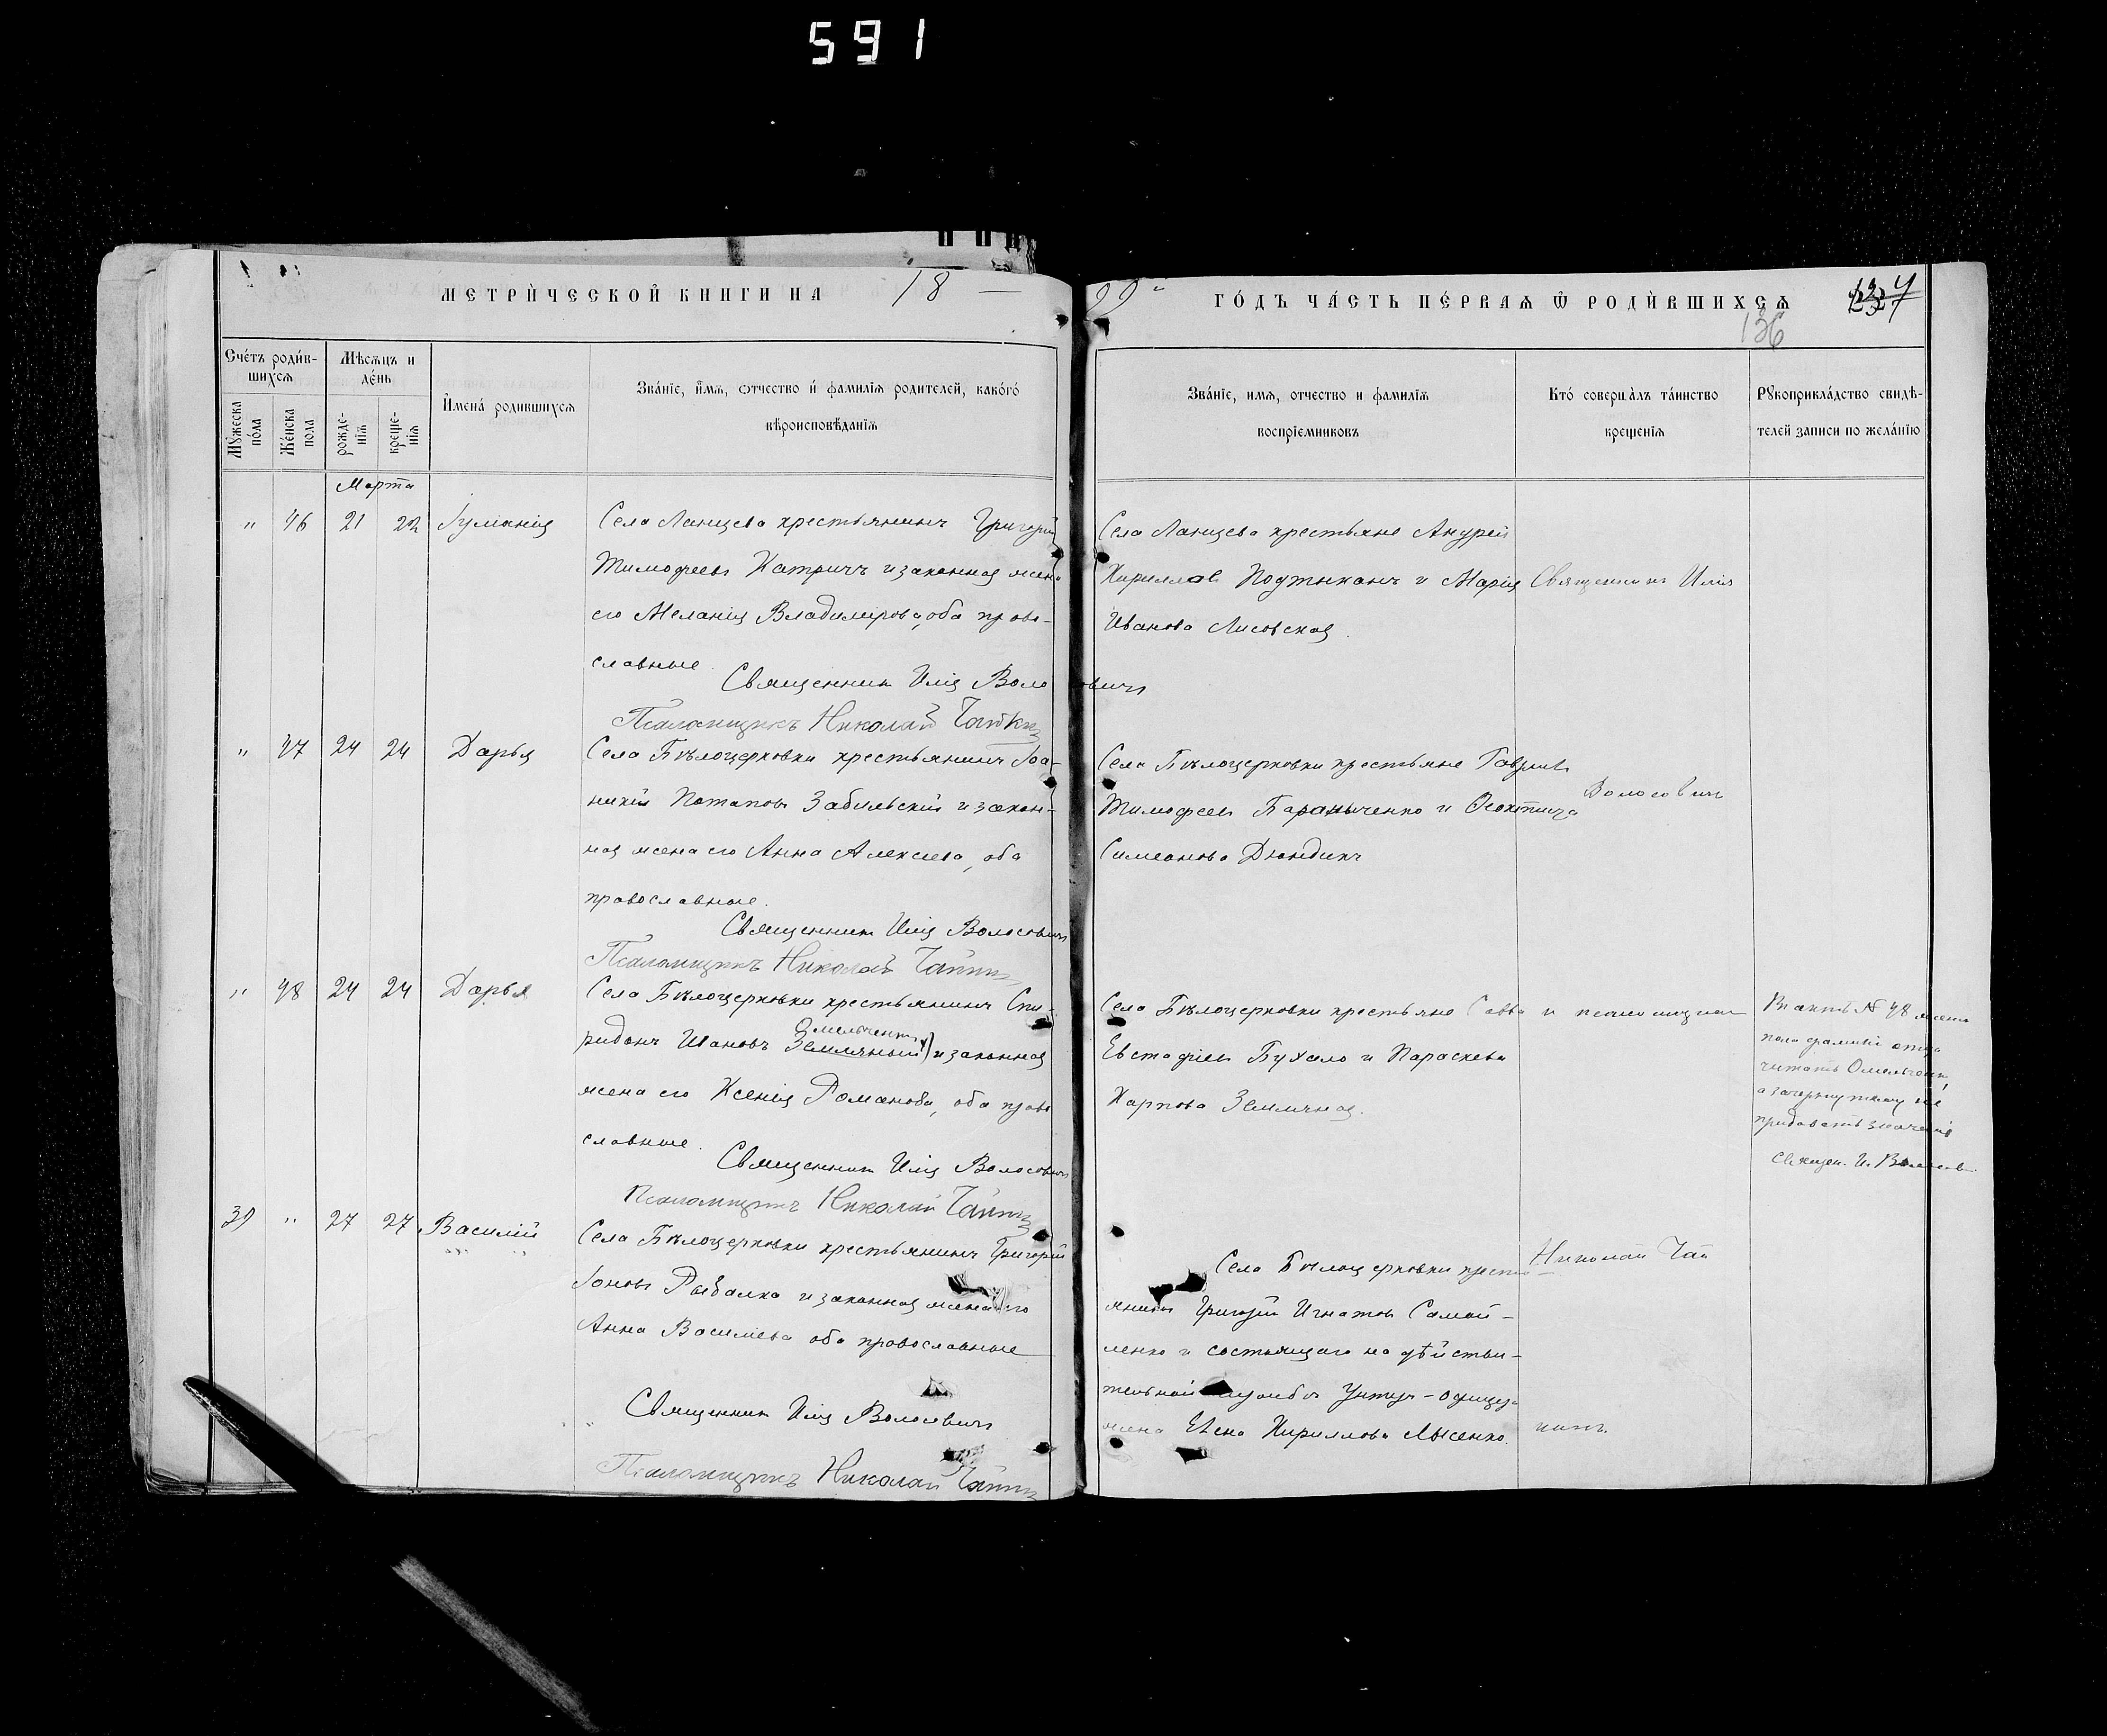 591
МЕТРИЧЕСКОЙ КНИГИ НА 18
99 ГО́ДЪ ЧА́СТЬ ПЕ́РВАѦ Ѿ РОДИ́ВШИХСѦ
136
Сче́тъ роди́в-
шихсѧ
Мѣсѧцъ и
де́нь
Мꙋ́жеска
по́ла
Же́нска
пола
рожде-
нїѧ
креще-
нїѧ
И҆мена́ родившихсѧ
Зва́нїе, и҆́мѧ, ѻтчество и҆ фамилїѧ родителей, како́гѡ
вѣроисповѣданїѧ
Зва́нїе, имѧ, отчество и фамилїѧ
воспрїемниковъ
Кто́ соверша́лъ та́инство
крещенїѧ
Рꙋкоприкла́дство свидѣ-
телей записи по жела́нїю
Марта
" 46 21 22 Іуліанія
Села Ланцева крестьянинъ Григорій
Тимофеевъ Катричъ и законная жена
его Меланія Владимірова, оба право-
славные.
Священникъ Илія Волосовичъ
Псаломщикъ Николай Чайкинъ
Села Ланцева крестьяне Андрей
Кирилловъ Подтыканъ и Марія
Иванова Лисовская.
Священникъ Илія
" 47 24 24 Дарья
Села Бѣлоцерковки крестьянинъ Іоа-
никій Потаповъ Забильскій и закон-
ная жена его Анна Алексиева, оба
православные.
Священникъ Илія Волосовичъ
Псаломщикъ Николай Чайкинъ
Села Бѣлоцерковки крестьяне Гавриилъ
Тимофеевъ и
Симеонова Дюндикъ
Волосовичъ
" 48 24 24 Дарья
Села Бѣлоцерковки крестьянинъ Спи-
Омельченко
ридонъ Ивановъ Земляный и законная
жена его Ксенія Романова, оба право
славные.
Священникъ Илія Волосовичъ
Псаломщикъ Николай Чайкинъ
Села Бѣлоцерковки крестьяне Савва
Евстафіевъ Бухало и Параскева
Карпова Земляная.
и псаломщикъ
Въ актѣ № 48 женск
пола фамилію отца
читать Омельченко,
а зачеркнутому не
придавать значенія
Священ. И. Волосов
39 " 27 27 Василій
Села Бѣлоцерковки крестьянинъ Григорій
Іоновъ Рыбалка и законная жена его
Анна Василіева оба православные
Священникъ Илія Волосовичъ
Псаломщикъ Николай Чайкинъ
Села Бѣлоцерковки кресть-
янинъ Григорій Игнатовъ Самой-
ленко и состоящаго на дѣйстви-
тельной службѣ Унтеръ-офицера
жена Елена Кириллова Лысенко.
Николай Чай
кинъ.